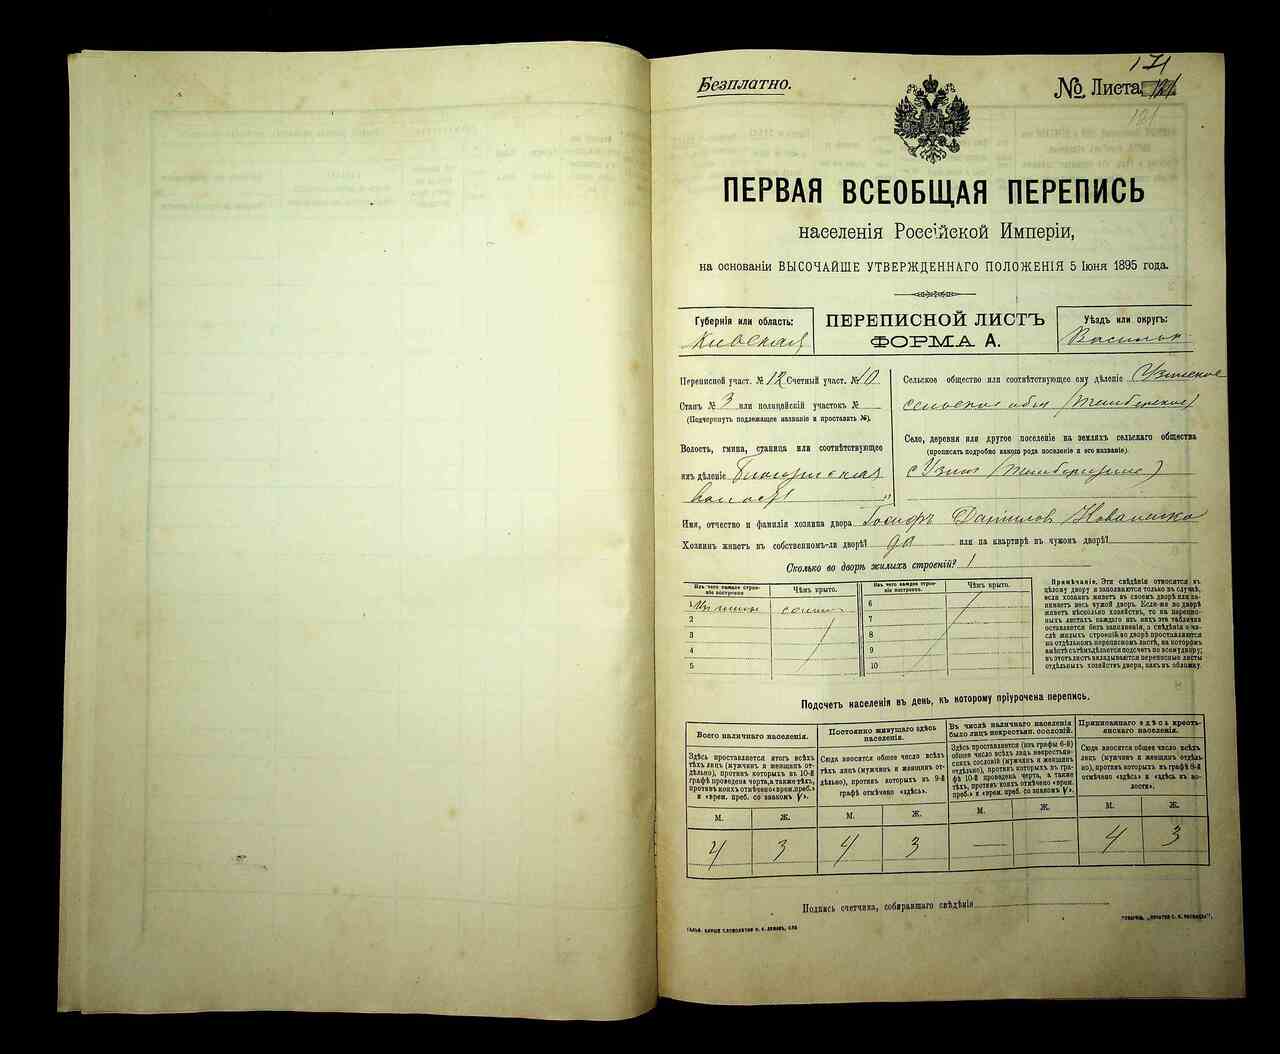 Безплатно.
№ Листа 171
181
ПЕРВАЯ ВСЕОБЩАЯ ПЕРЕПИСЬ
населенія Россійской Имперіи,
на основаніи ВЫСОЧАЙШЕ УТВЕРЖДЕННАГО ПОЛОЖЕНІЯ 5 Іюня 1895 года.
Губернія или область:
Киевская
ПЕРЕПИСНОЙ ЛИСТЪ
ФОРМА А.
Уѣздъ или округъ:
Васильк
Переписной участ. № 12 Счетный участ. № 10
Станъ № 3 или полицейскій участокъ №
(Подчеркнуть подлежащее названіе и проставить №).
Волость, гмина, станица или соотвѣтствующее
имъ дѣленіе
волость
Сельское общество или соотвѣтствующее ему дѣленіе Узинское
сельское общ
Село, деревня или другое поселеніе на земляхъ сельскаго общества
(прописать подробно какого рода поселеніе и его названіе).
с Узин
Имя, отчество и фамилія хозяина двора Іосифъ Данилов Коваленко
Хозяинъ живетъ въ собственномъ-ли дворѣ? да или на квартирѣ въ чужомъ дворѣ?
Сколько во дворѣ жилыхъ строеній? 1
Изъ чего каждое строе-
ніе построено
Чѣмъ крыто.
Изъ чего каждое строе-
ніе построено.
Чѣмъ крыто.
1 6
2 7
3 8
4 9
5 10
Примѣчаніе. Эти свѣдѣнія относятся къ
цѣлому двору и заполняются только въ случаѣ,
если хозяинъ живетъ въ своемъ дворѣ или за-
нимаетъ весь чужой дворъ. Если-же во дворѣ
живетъ нѣсколько хозяйствъ, то на перепис-
ныхъ листахъ каждаго изъ нихъ эта табличка
оставляется безъ заполненія, а свѣдѣнія о чи-
слѣ жилыхъ строеній во дворѣ проставляются
на отдѣльномъ переписномъ листѣ, на которомъ
вмѣстѣ съ тѣмъ дѣлается подсчетъ по всему двору;
въ этотъ листъ вкладываются переписные листы
отдѣльныхъ хозяйствъ двора, какъ въ обложку.
Подсчетъ населенія въ день, къ которому пріурочена перепись.
Всего наличнаго населенія.
Здѣсь проставляется итогъ всѣхъ
тѣхъ лицъ (мужчинъ и женщинъ от-
дѣльно), противъ которыхъ въ 10-й
графѣ проведена черта, а также тѣхъ,
противъ коихъ отмѣчено «врем. преб.»
и «врем. преб. со знакомъ V».
Постоянно живущаго здѣсь
населенія.
Сюда вносится общее число всѣхъ
тѣхъ лицъ (мужчинъ и женщинъ от-
дѣльно), противъ которыхъ въ 9-й
графѣ отмѣчено «здѣсь».
Въ числѣ наличнаго населенія
было лицъ некрестьян. сословій.
Здѣсь проставляется (изъ графы 6-й)
общее число всѣхъ лицъ некрестьян-
скихъ сословій (мужчинъ и женщинъ
отдѣльно), противъ которыхъ въ гра-
фѣ 10-й проведена черта, а также
тѣхъ, противъ коихъ отмѣчено «врем.
преб.» и «врем. преб. со знакомъ V».
Приписаннаго здѣсь кресть-
янскаго населенія.
Сюда вносится общее число всѣхъ
лицъ (мужчинъ и женщинъ отдѣль-
но), противъ которыхъ въ графѣ 8-й
отмѣчено «здѣсь» и «здѣсь въ во-
лости».
М. Ж. М. Ж. М. Ж. М. Ж.
4 3 4 3 — — 4 3
Подпись счетчика, собиравшаго свѣдѣнія